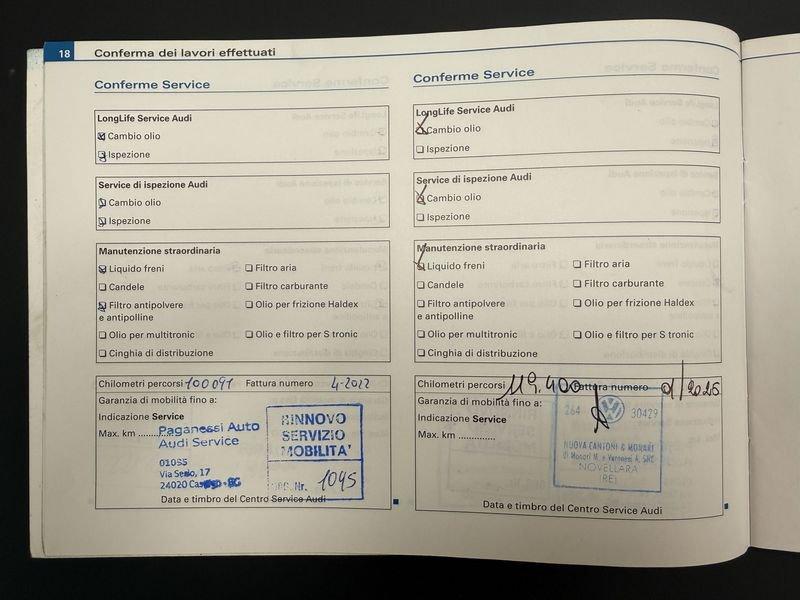 18 Conferma dei lavori effettuati
Conferme Service
LongLife Service Audi
Cambio olio
Ispezione
Service di ispezione Audi
Cambio olio
Ispezione
Manutenzione straordinaria
Liquido freni
Filtro aria
Candele
Filtro carburante
Filtro antipolvere
e antipolline
Olio per frizione Haldex
Olio per multitronic
Olio e filtro per S tronic
Cinghia di distribuzione
Chilometri percorsi 100091 Fattura numero 4-2022
Garanzia di mobilità fino a:
Indicazione Service
Max. km ..............
Paganessi Auto
Audi Service
01085
Via Serio, 17
24020
RINNOVO
SERVIZIO
MOBILITA'
Nr. 1045
Data e timbro del Centro Service Audi
Conferme Service
LongLife Service Audi
Cambio olio
Ispezione
Service di ispezione Audi
Cambio olio
Ispezione
Manutenzione straordinaria
Liquido freni
Filtro aria
Candele
Filtro carburante
Filtro antipolvere
e antipolline
Olio per frizione Haldex
Olio per multitronic
Olio e filtro per S tronic
Cinghia di distribuzione
Chilometri percorsi 119.400 Fattura numero
Garanzia di mobilità fino a:
Indicazione Service
Max. km ..............
264 30429
NUOVA CANTONI & MONARI
di Monari M. e Varonesi A. SRL
NOVELLARA
(RE)
Data e timbro del Centro Service Audi